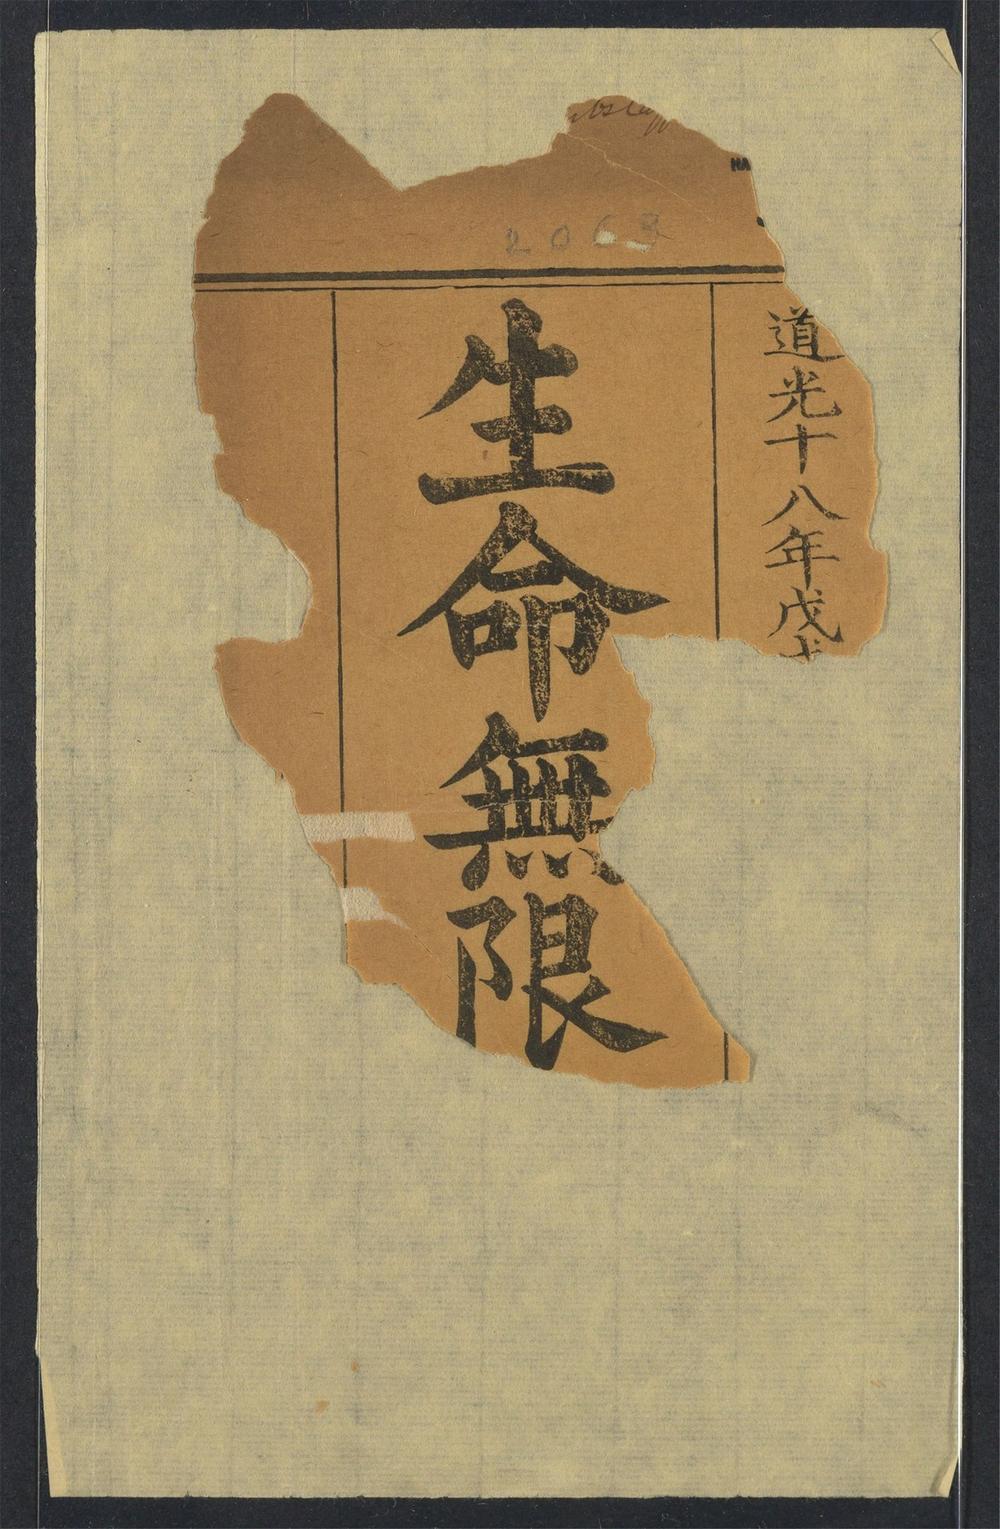 HA
2063
道光十八年戊
生命無限